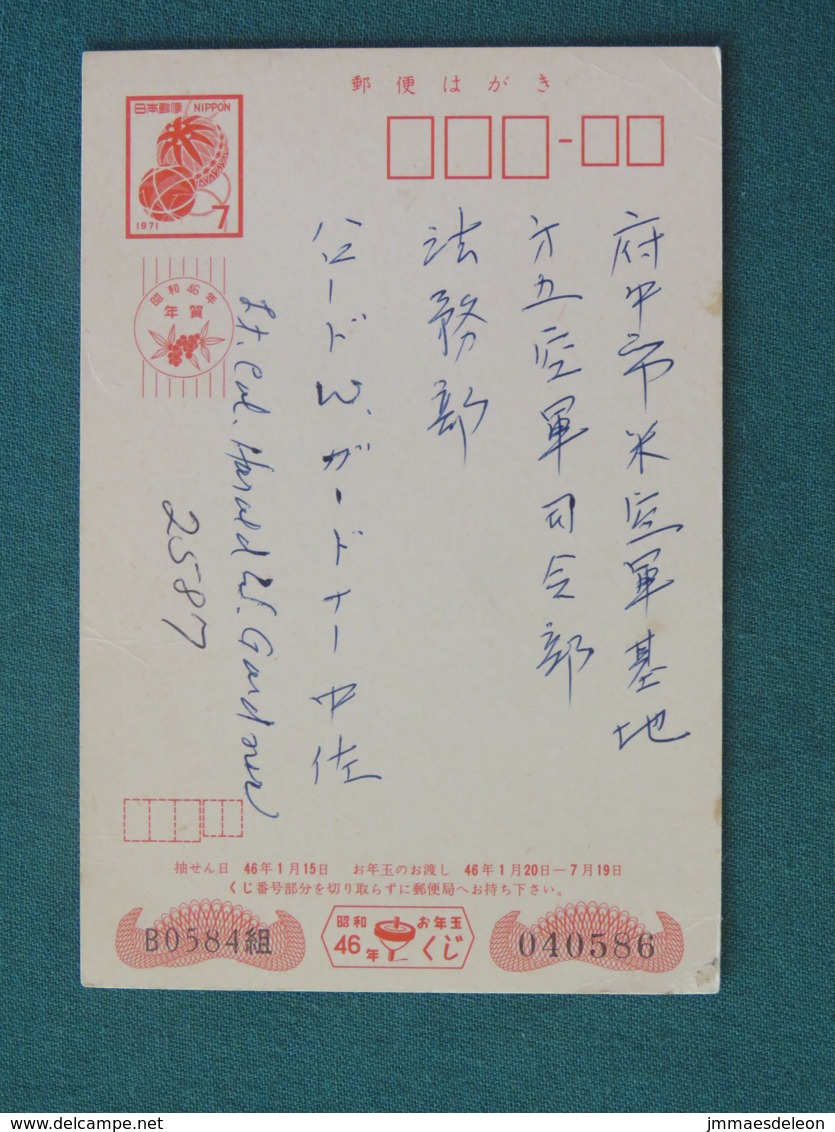 郵便はがき
日本郵便 NIPPON
1971 7
昭和46年
年賀
府中市米空軍基地
才五空軍司令部
法務部
ハロードW.ガードナー中佐
Lt. Col. Harold W. Gardner
2587
抽せん日 46年1月15日 お年玉のお渡し 46年1月20日—7月19日
くじ番号部分を切り取らずに郵便局へお持ち下さい。
B0584組
昭和46年 お年玉くじ
040586
www.delcampe.net
jmmaesdeleon